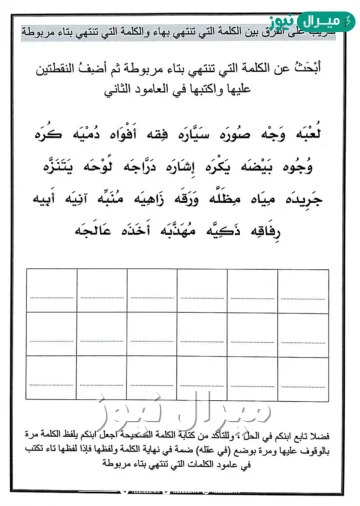 ميرال نيوز
تدريب على الفرق بين الكلمة التي تنتهي بهاء والكلمة التي تنتهي بتاء مربوطة
أبْحَثُ عن الكلمة التي تنتهي بتاء مربوطة ثم أضِفُ النقطتين
عليها واكتبها في العامود الثاني
لُعْبَه وَجْه صورَه سَيَّارَه فِقه أفْواه دُمْيَه كُرَه
وُجوه بَيْضَه يَكْرَه إشارَه دَرَّاجَه لَوْحَه يَتَنَزَّه
جَريدَه مِياه مِظَلَّه وَرَقَه زاهِيَه مُنَبِّه آنِيَه أبيه
رِفاقِه ذَكِيَّه مُهَذَّبَه أخَذَه عالَجَه
ميرال نيوز
فضلا تابع ابنكم في الحل ، وللتأكد من كتابة الكلمة الصحيحة اجعل ابنكم يلفظ الكلمة مرة
بالوقوف عليها ومرة بوضع (في عقله) ضمة في نهاية الكلمة ولفظها فإذا لفظها تاء تكتب
في عامود الكلمات التي تنتهي بتاء مربوطة